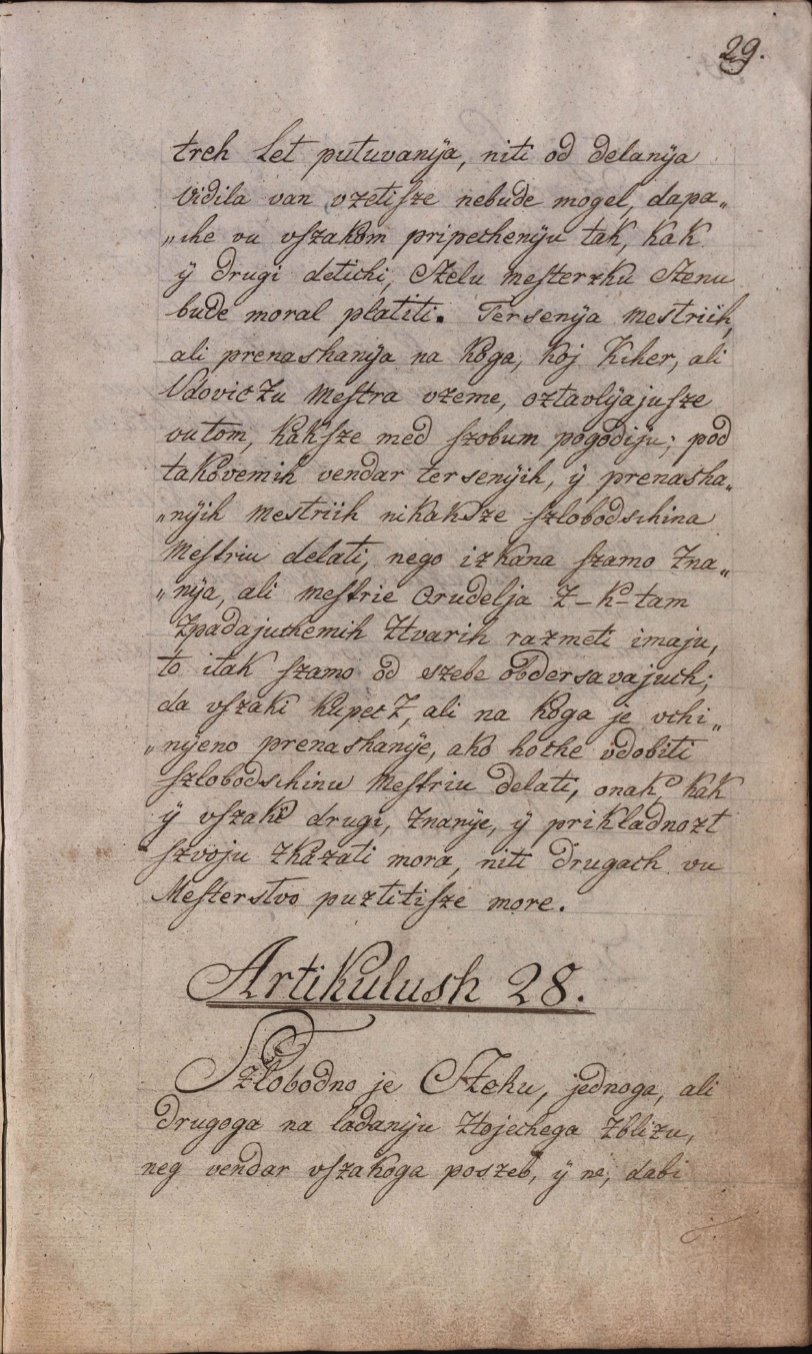 29.
treh Let putuvanÿa, niti od delanÿa
Videla van vzetiſze nebude mogel, dapa„
„che vu vſzakom pripechenÿu tak, kak
ÿ drugi detichi, Czelu Meſterzku Czenu
bude moral platiti. Tersenÿa Mestriih,
ali prenashanÿa na koga, koj Kcher, ali
Vdoviczu Meſtra vzeme, oztavlÿajuſze
vutom, kakſze med ſzobum pogodiju; pod
takovemih vendar tersenÿih, ÿ prenasha„
„nÿih Mestriih nikakſze ſzlobodschina
Meſtriu delati, nego izkana ſzamo Zna„
„nÿa, ali Meſtrie Orudelja z-k-tam
Zpadajuchemih Ztvarih razmeti imaju,
to itak ſzamo od szebe obdersavajuch;
da vſzaki kupecz, ali na koga je vchi„
„nÿeno prenashanÿe, ako hoche vdobiti
ſzlobodschinu Meſtriu delati, onak kak
ÿ vſzaki drugi, Znanÿe, ÿ prikladnozt
ſzvoju zkazati mora, niti drugach vu
Meſterstvo puztitiſze more.
Artikulush 28.
Szlobodno je Czehu, jednoga, ali
drugoga na ladanÿu ztojechega zblizu,
neg vendar vſzakoga poszeb, ÿ ne, dabi